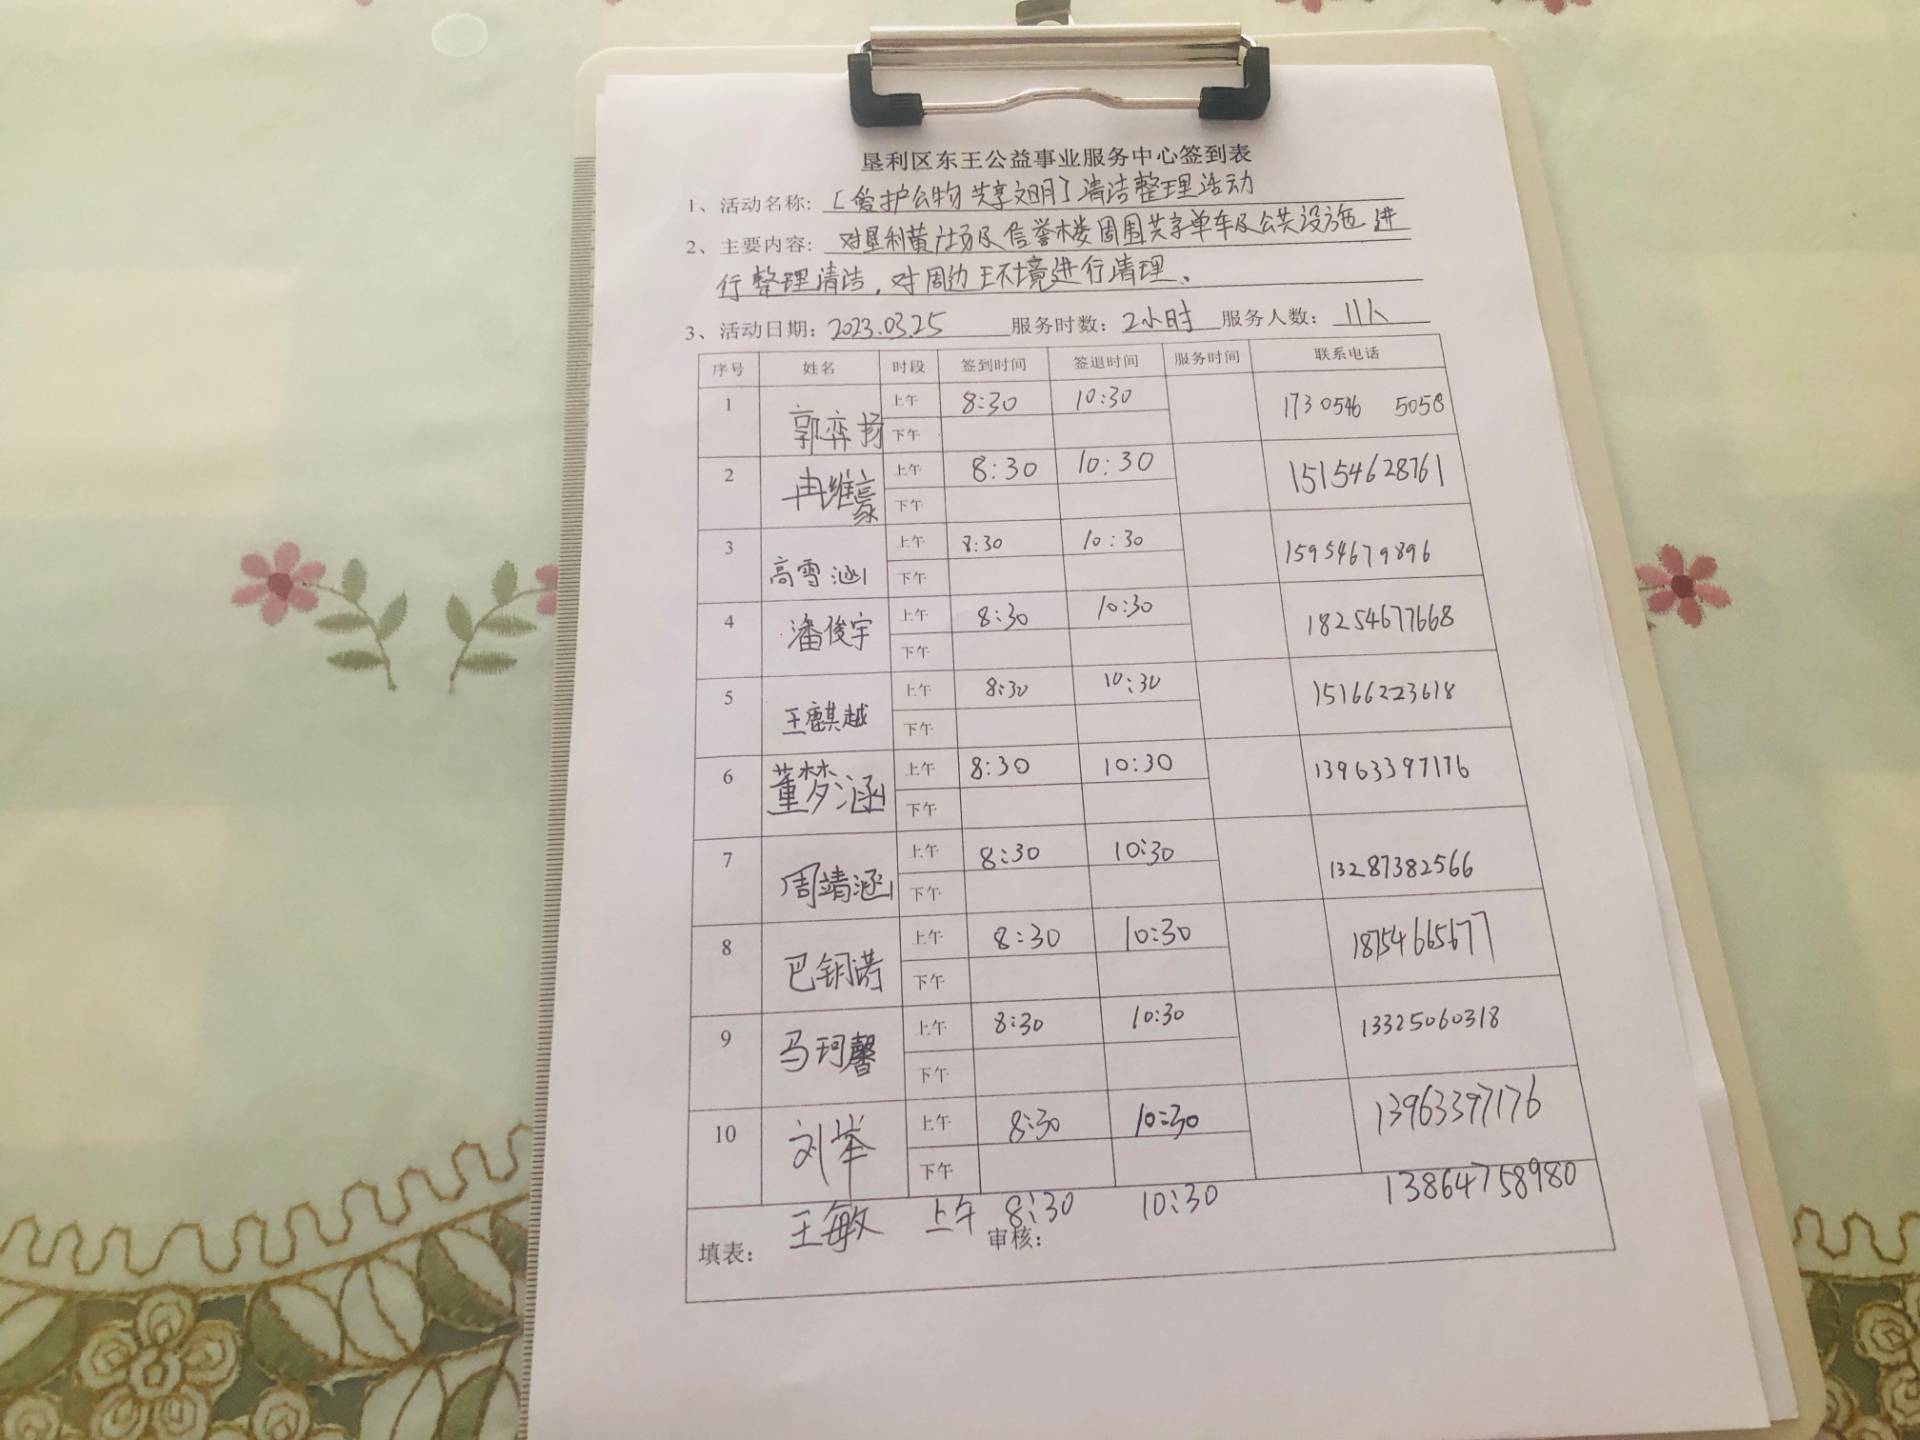 垦利区东王公益事业服务中心签到表
1、活动名称：[爱护公物 共享文明]清洁整理活动
2、主要内容：对垦利黄广场及信誉楼周围共享单车及公共设施进
行整理清洁，对周边环境进行清理、
3、活动日期：2023.03.25 服务时数：2小时 服务人数：11人
序号 姓名 时段 签到时间 签退时间 服务时间 联系电话
1 郭弈扬 上午 8:30 10:30 1730546 5058
下午
2 冉维豪 上午 8:30 10:30 15154628761
下午
3 高雪涵 上午 8:30 10:30 15954679896
下午
4 潘俊宇 上午 8:30 10:30 18254677668
下午
5 王麒越 上午 8:30 10:30 15166223618
下午
6 董梦涵 上午 8:30 10:30 13963397176
下午
7 周靖涵 上午 8:30 10:30 13287382566
下午
8 巴钥诺 上午 8:30 10:30 18754665677
下午
9 马珂馨 上午 8:30 10:30 13325060318
下午
10 刘举 上午 8:30 10:30 13963397176
下午
王敏 上午 8:30 10:30 13864758980
填表： 审核：